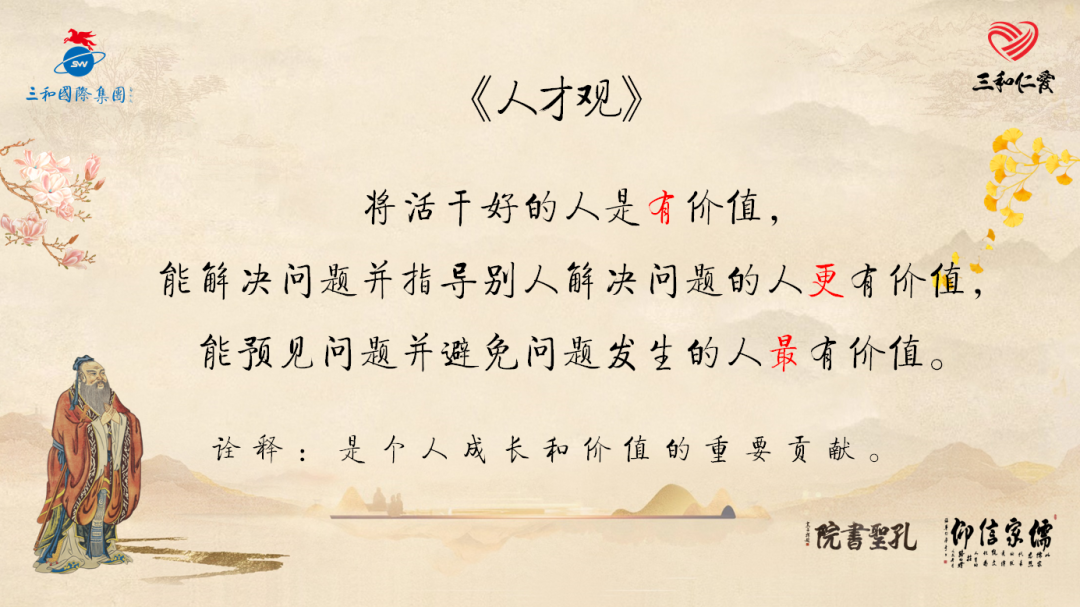 三和國際集團
三和仁爱
《人才观》
将活干好的人是有价值，
能解决问题并指导别人解决问题的人更有价值，
能预见问题并避免问题发生的人最有价值。
诠释：是个人成长和价值的重要贡献。
院書聖孔
仰信家儒